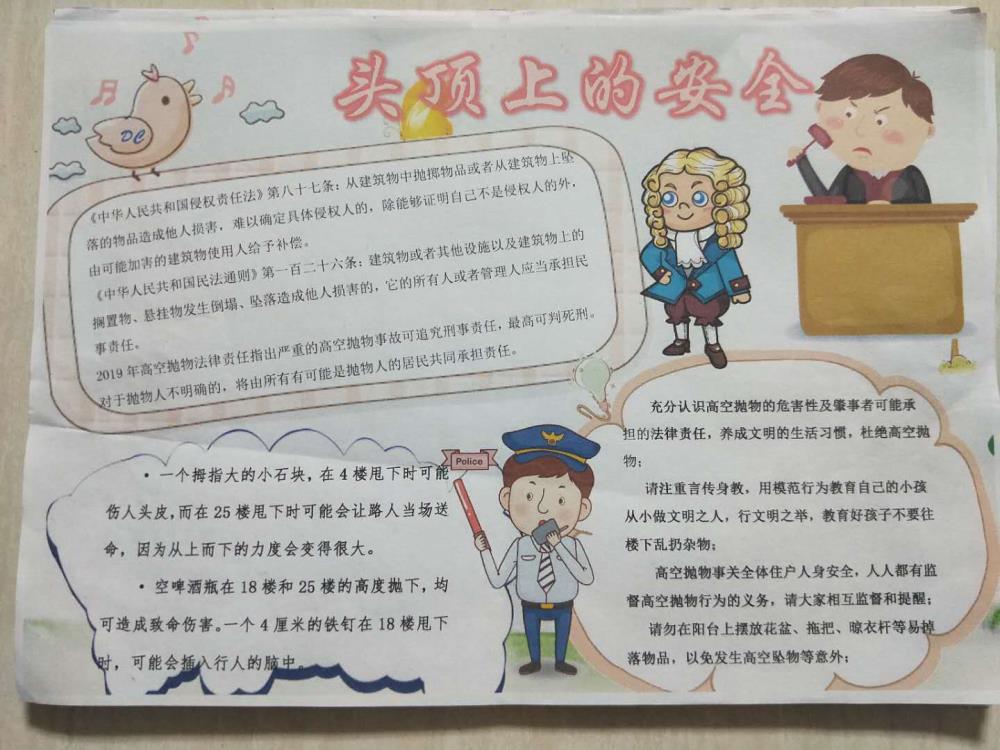 头顶上的安全
DC
《中华人民共和国侵权责任法》第八十七条：从建筑物中抛掷物品或者从建筑物上坠
落的物品造成他人损害，难以确定具体侵权人的，除能够证明自己不是侵权人的外，
由可能加害的建筑物使用人给予补偿。
《中华人民共和国民法通则》第一百二十六条：建筑物或者其他设施以及建筑物上的
搁置物、悬挂物发生倒塌、坠落造成他人损害的，它的所有人或者管理人应当承担民
事责任。
2019年高空抛物法律责任指出严重的高空抛物事故可追究刑事责任，最高可判死刑。
对于抛物人不明确的，将由所有有可能是抛物人的居民共同承担责任。
·一个拇指大的小石块，在4楼甩下时可能
伤人头皮,而在25楼甩下时可能会让路人当场送
命，因为从上而下的力度会变得很大。
·空啤酒瓶在18楼和25楼的高度抛下，均
可造成致命伤害。一个4厘米的铁钉在18楼甩下
时，可能会插入行人的脑中。
Police
充分认识高空抛物的危害性及肇事者可能承
担的法律责任，养成文明的生活习惯，杜绝高空抛
物；
请注重言传身教，用模范行为教育自己的小孩
从小做文明之人，行文明之举，教育好孩子不要往
楼下乱扔杂物；
高空抛物事关全体住户人身安全，人人都有监
督高空抛物行为的义务，请大家相互监督和提醒；
请勿在阳台上摆放花盆、拖把、晾衣杆等易掉
落物品，以免发生高空坠物等意外；